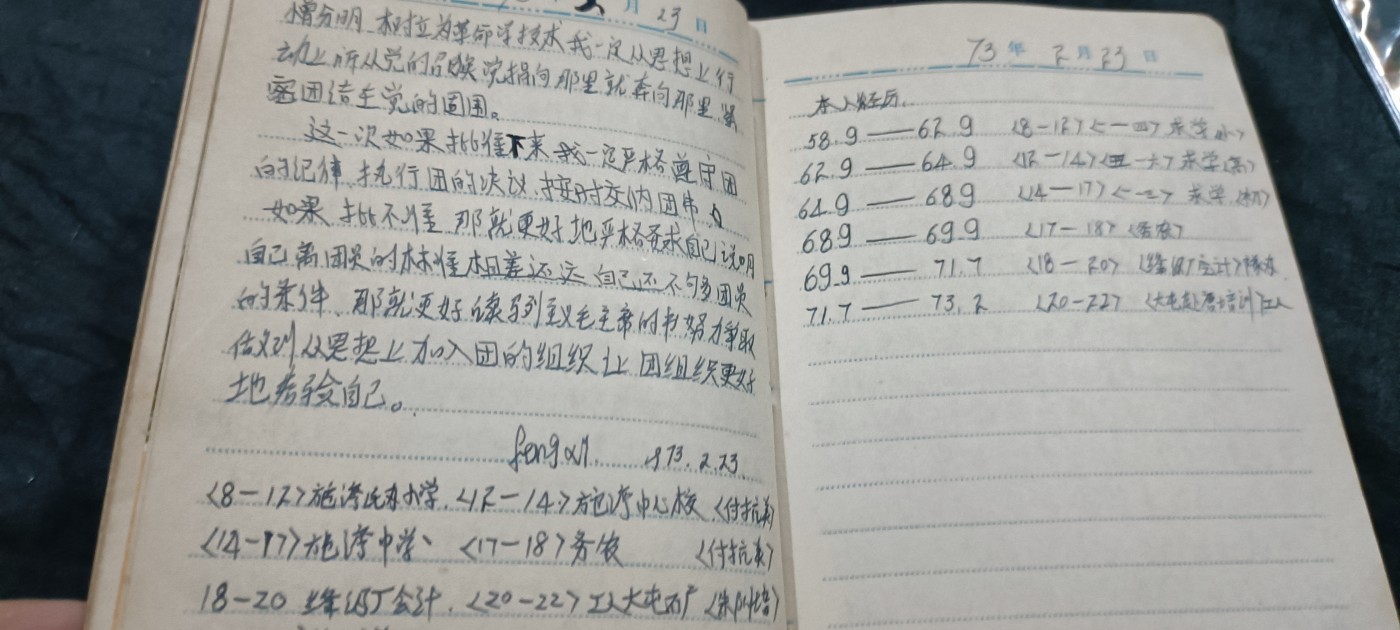 月 23 日
憎分明。树立为革命学技术我一定从思想上行
动上听从党的召唤党指向那里就奔向那里紧
密团结在党的周围。
这一次如果批准下来我一定严格遵守团
的纪律、执行团的决议、按时交纳团费
如果批不准那就更好地严格要求自己说明
自己离团员的标准相差还远自己还不够团员
的条件、那就更好读马列主义毛主席的书努力争取
做到从思想上加入团的组织让团组织更好
地考验自己。
1973.2.23.
<8—12> 小学.<12—14> 中心校 <付抗美>
<14—17> 中学、 <17—18>务农 <付抗美>
18—20 厂会计.<20—22>工人大屯
73 年 2 月 23 日
本人经历.
58.9 —— 62.9 <8—12> <一—四> 求学<小>
62.9 —— 64.9 <12—14> <五—六> 求学<高>
64.9 —— 68.9 <14—17> <一—二> 求学<初>
68.9 —— 69.9 <17—18> <务农>
69.9 —— 71.7 <18—20> 会计
71.7 —— 73.2 <20—22> 培训 工人